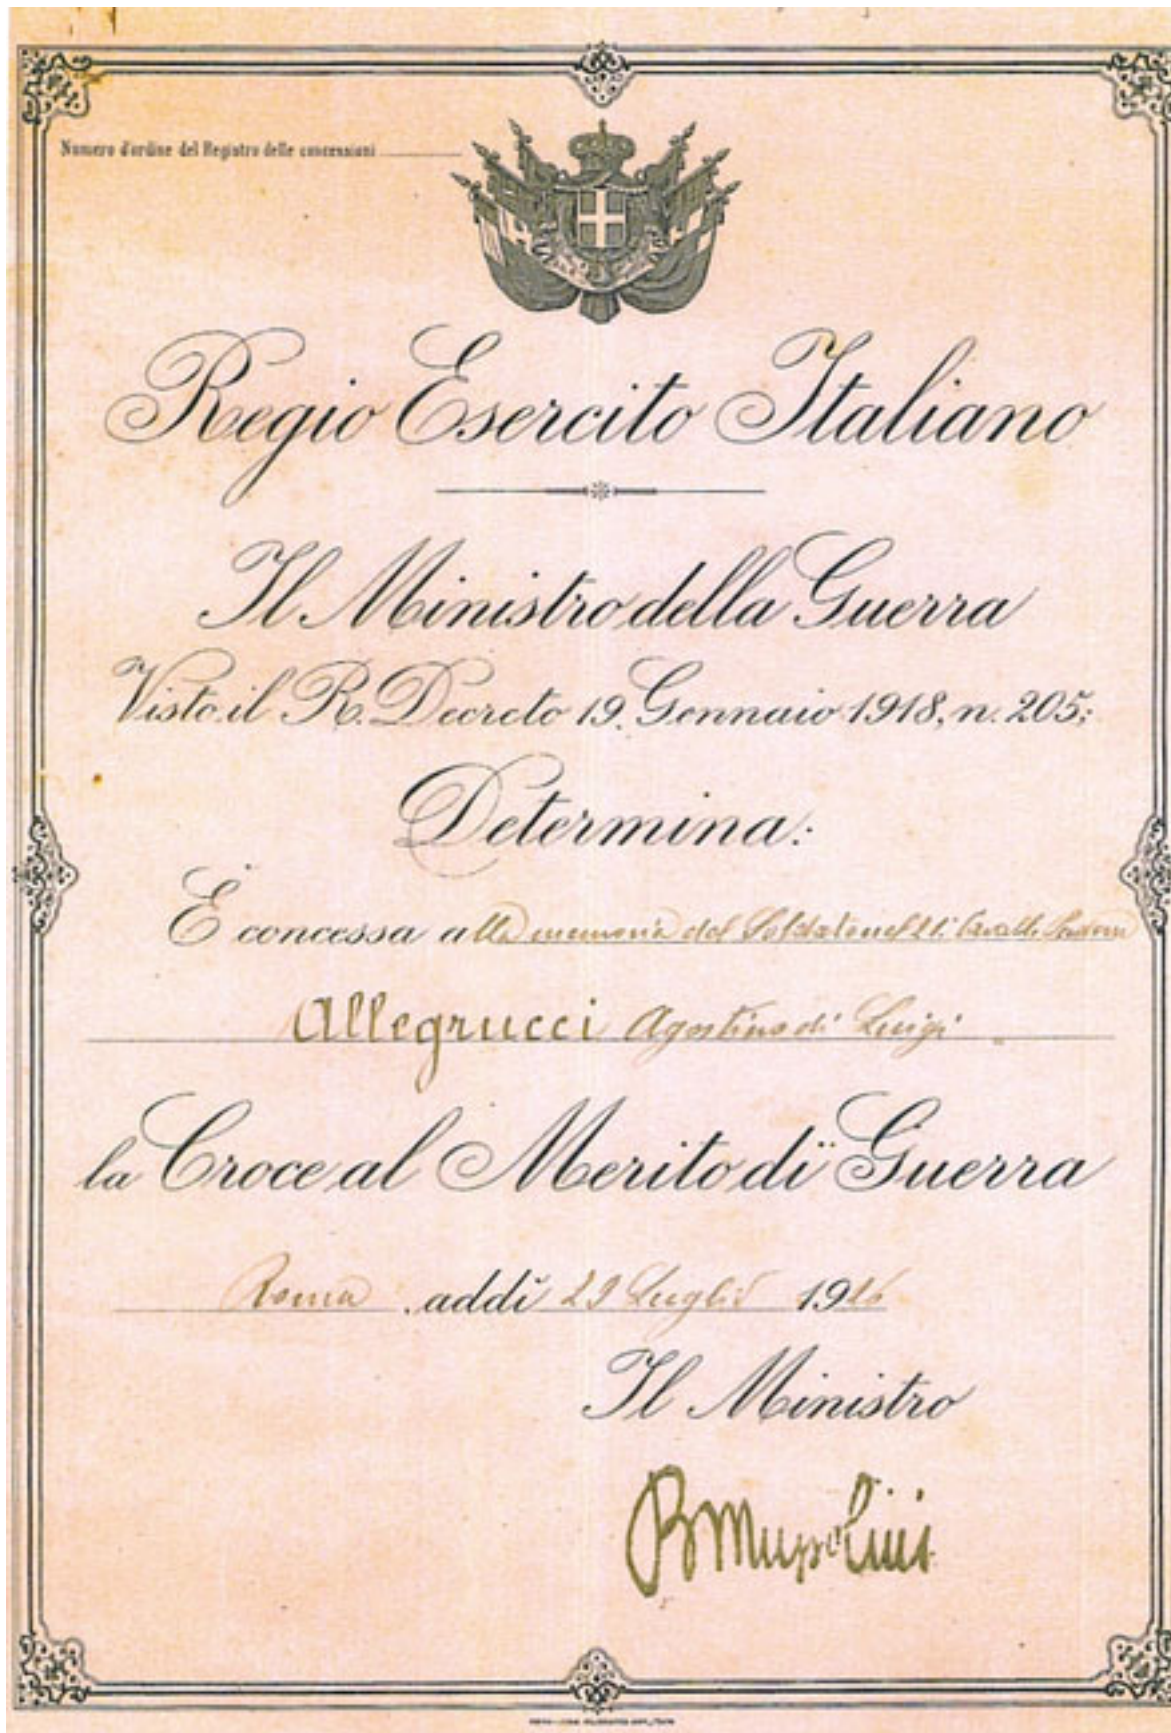 Numero d'ordine del Registro delle concessioni
Regio Esercito Italiano
Il Ministro della Guerra
Visto il R. Decreto 19 Gennaio 1918, n. 205;
Determina:
È concessa alla memoria del Soldato nel
Allegrucci Agostino di Luigi
la Croce al Merito di Guerra
Roma, addì 29 Luglio 1926
Il Ministro
B Mussolini